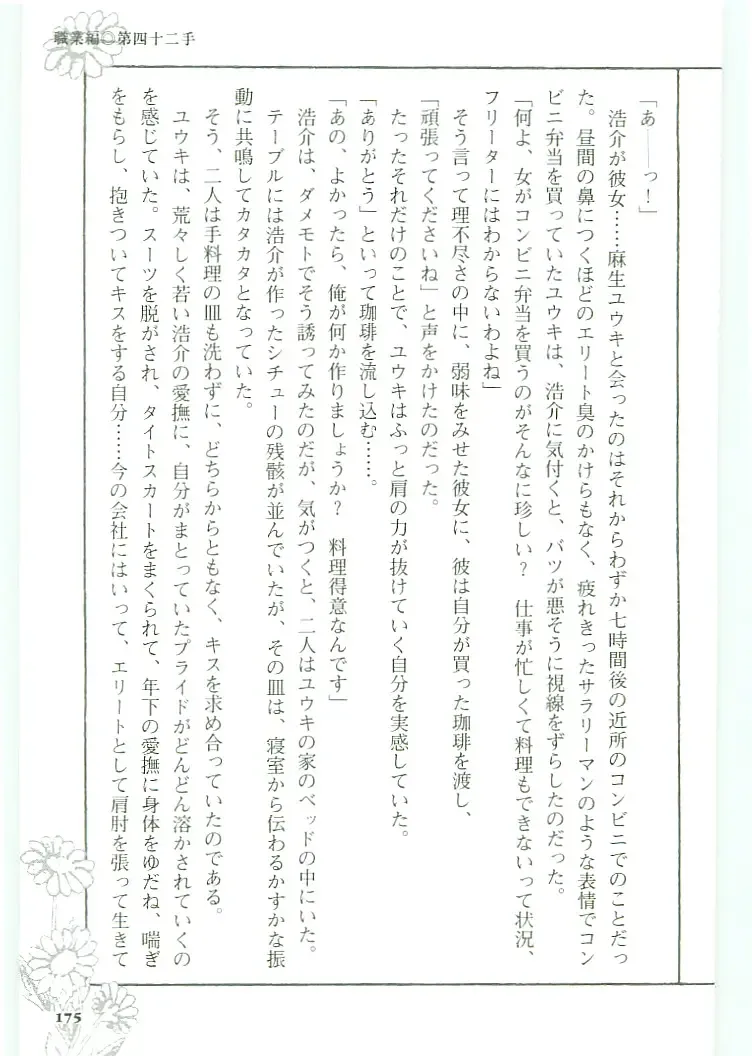 職業編◎第四十二手
「あ――っ！」
　浩介が彼女……麻生ユウキと会ったのはそれからわずか七時間後の近所のコンビニでのことだっ
た。昼間の鼻につくほどのエリート臭のかけらもなく、疲れきったサラリーマンのような表情でコン
ビニ弁当を買っていたユウキは、浩介に気付くと、バツが悪そうに視線をずらしたのだった。
「何よ、女がコンビニ弁当を買うのがそんなに珍しい？　仕事が忙しくて料理もできないって状況、
フリーターにはわからないわよね」
　そう言って理不尽さの中に、弱味をみせた彼女に、彼は自分が買った珈琲を渡し、
「頑張ってくださいね」と声をかけたのだった。
　たったそれだけのことで、ユウキはふっと肩の力が抜けていく自分を実感していた。
「ありがとう」といって珈琲を流し込む……。
「あの、よかったら、俺が何か作りましょうか？　料理得意なんです」
　浩介は、ダメモトでそう誘ってみたのだが、気がつくと、二人はユウキの家のベッドの中にいた。
　テーブルには浩介が作ったシチューの残骸が並んでいたが、その皿は、寝室から伝わるかすかな振
動に共鳴してカタカタとなっていた。
　そう、二人は手料理の皿も洗わずに、どちらからともなく、キスを求め合っていたのである。
　ユウキは、荒々しく若い浩介の愛撫に、自分がまとっていたプライドがどんどん溶かされていくの
を感じていた。スーツを脱がされ、タイトスカートをまくられて、年下の愛撫に身体をゆだね、喘ぎ
をもらし、抱きついてキスをする自分……今の会社にはいって、エリートとして肩肘を張って生きて
175